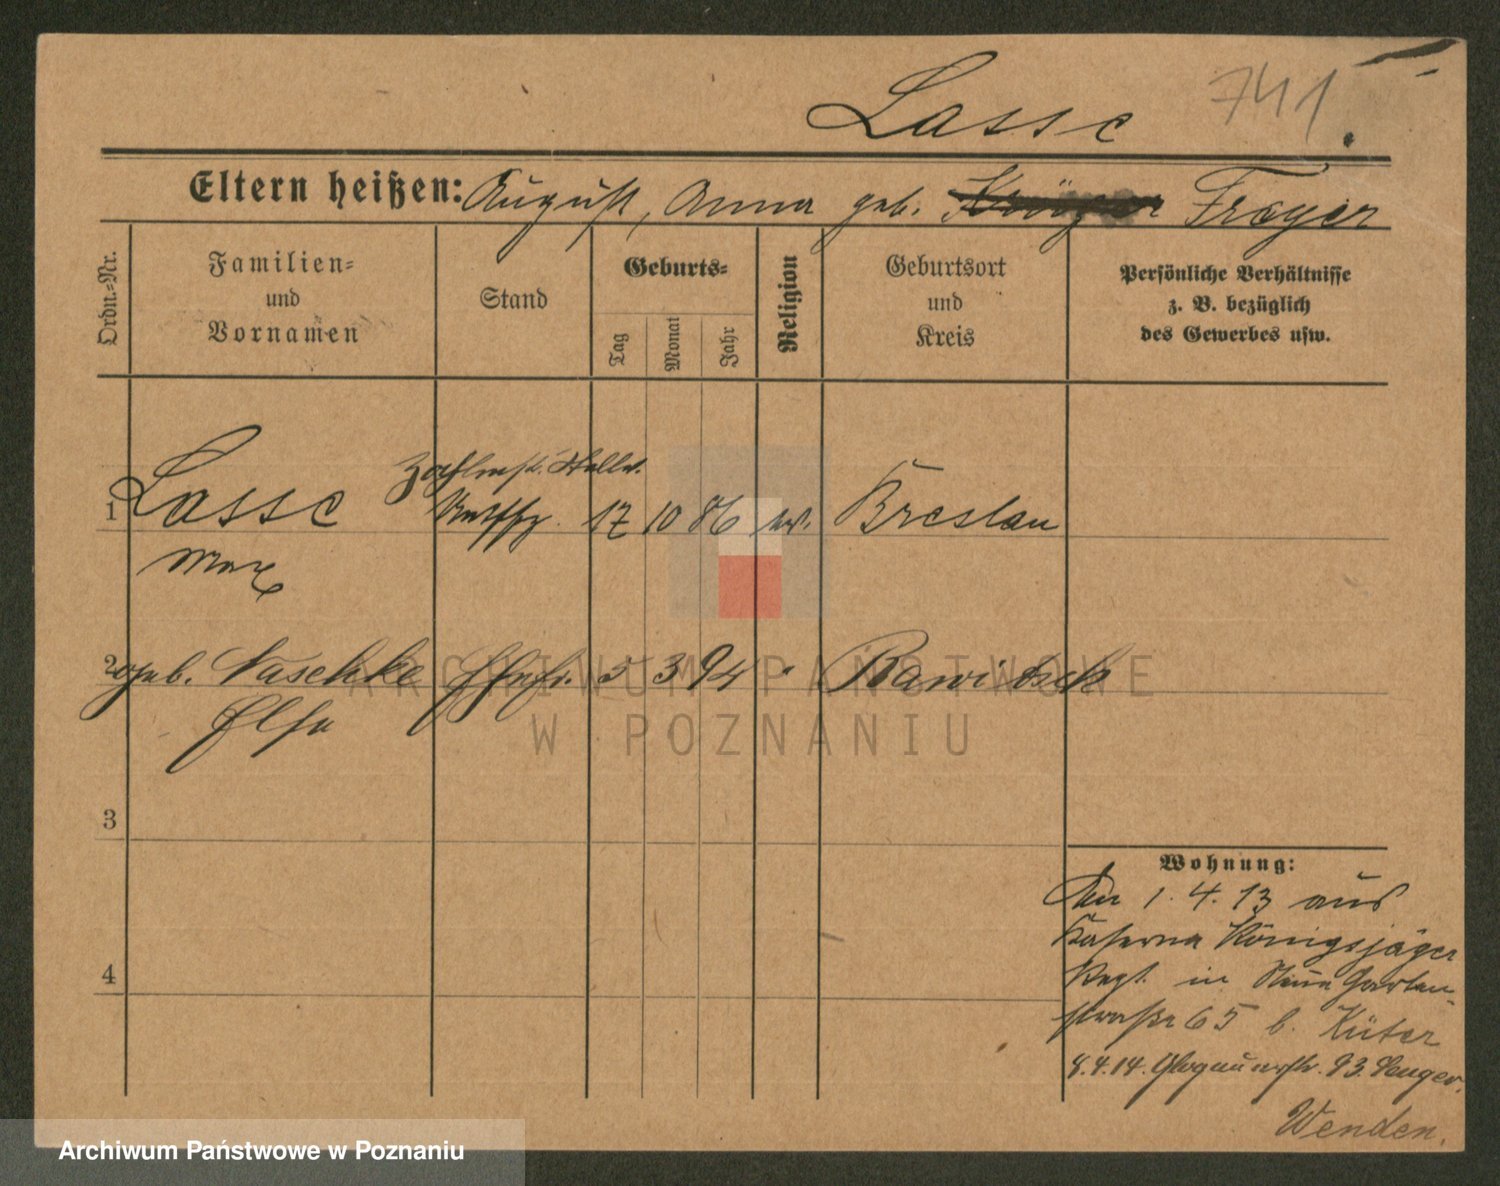 Lasse 741
Eltern heißen: August, Anna geb. Krüger Frayer
Ordn.-Nr.
Familien-
und
Vornamen
Stand
Geburts-
Tag
Monat
Jahr
Religion
Geburtsort
und
Kreis
Persönliche Verhältnisse
z. B. bezüglich
des Gewerbes usw.
Zahlmst. Stellv.
1 Lasse 17 10 86 ev. Breslau
Max
2 geb. Naschke Ehefr. 5 3 94 " Rawitsch
Elsa
3
4
Wohnung:
Am 1.4.13 aus
Kaserne Königsjäger
Regt. in Neue Garten-
straße 65 b. Küter
8.4.14. Glogauerstr. 93.
Wenden.
ARCHIWUM PAŃSTWOWE
W POZNANIU
Archiwum Państwowe w Poznaniu